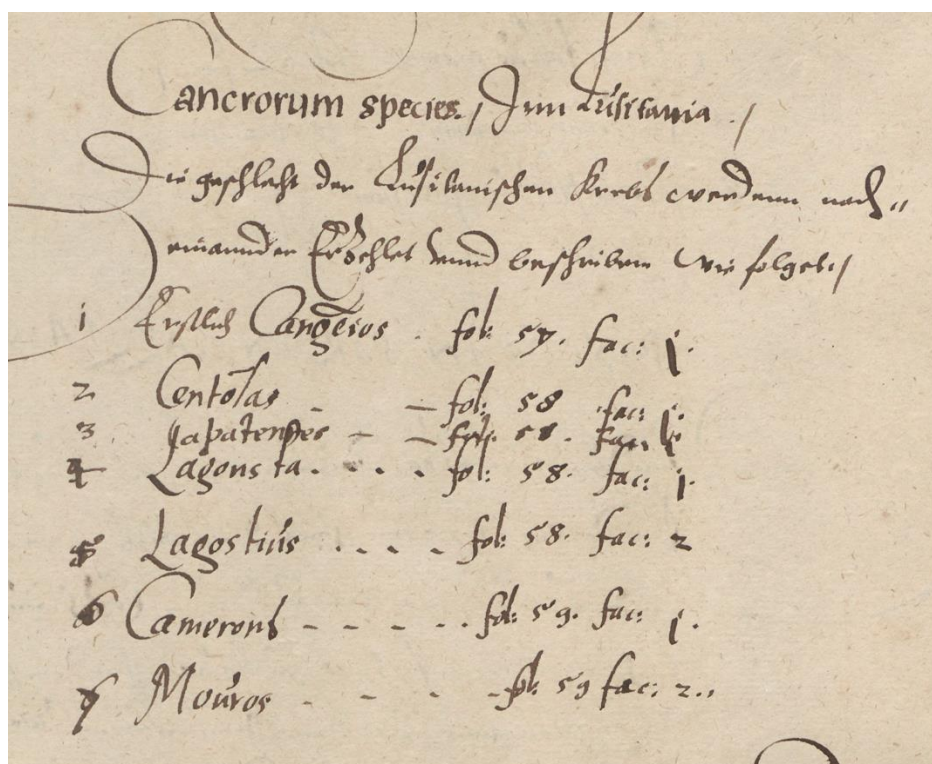 Cancrorum species / Inn Lusitania ./
Die geschlecht der Lusitanischen Krebs werdenn nach„
einannder Erzehlet vnnd beschriben wie folget./
1 Erstlich Cangeios . fol: 57. fac: j.
2 Centolas - - fol: 58 fac: j.
3 - - fol: 58. fac: j.
4 Lagonsta. . . . fol: 58. fac: j.
5 Lagostius . . . . fol: 58. fac: 2
6 Camerons - - - - . . fol: 59. fac: j.
7 Mouros - - - - fol: 59 fac: 2..